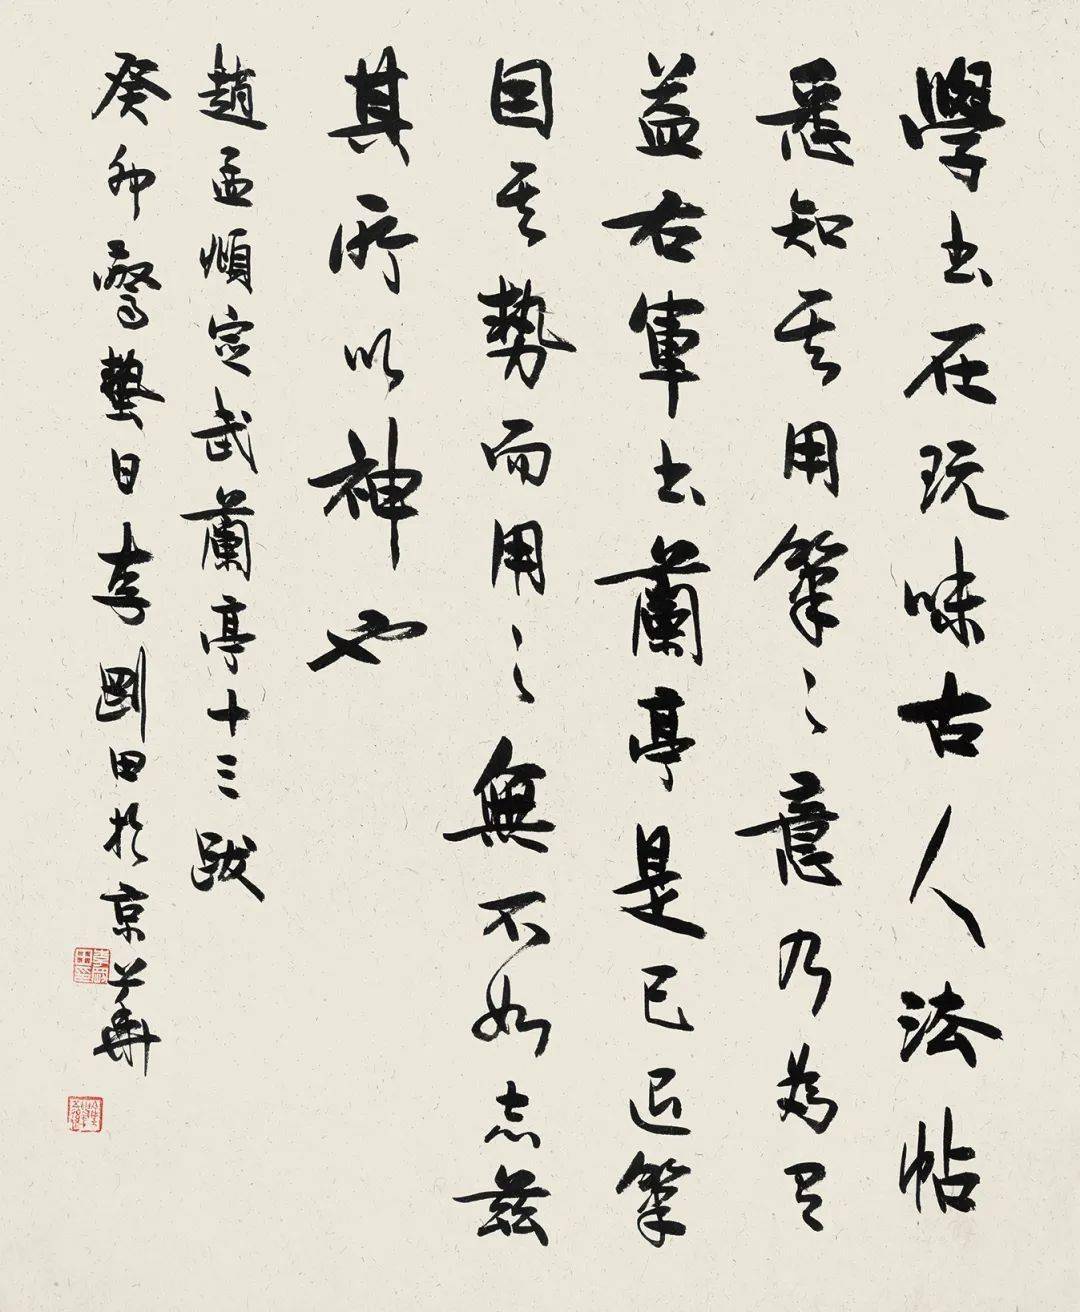 學書在玩味古人法帖
悉知其用筆之意乃為有
益右軍書蘭亭是已退筆
因其勢而用之無不如志兹
其所以神也
趙孟頫定武蘭亭十三跋
癸卯驚蟄日李剛田於京華